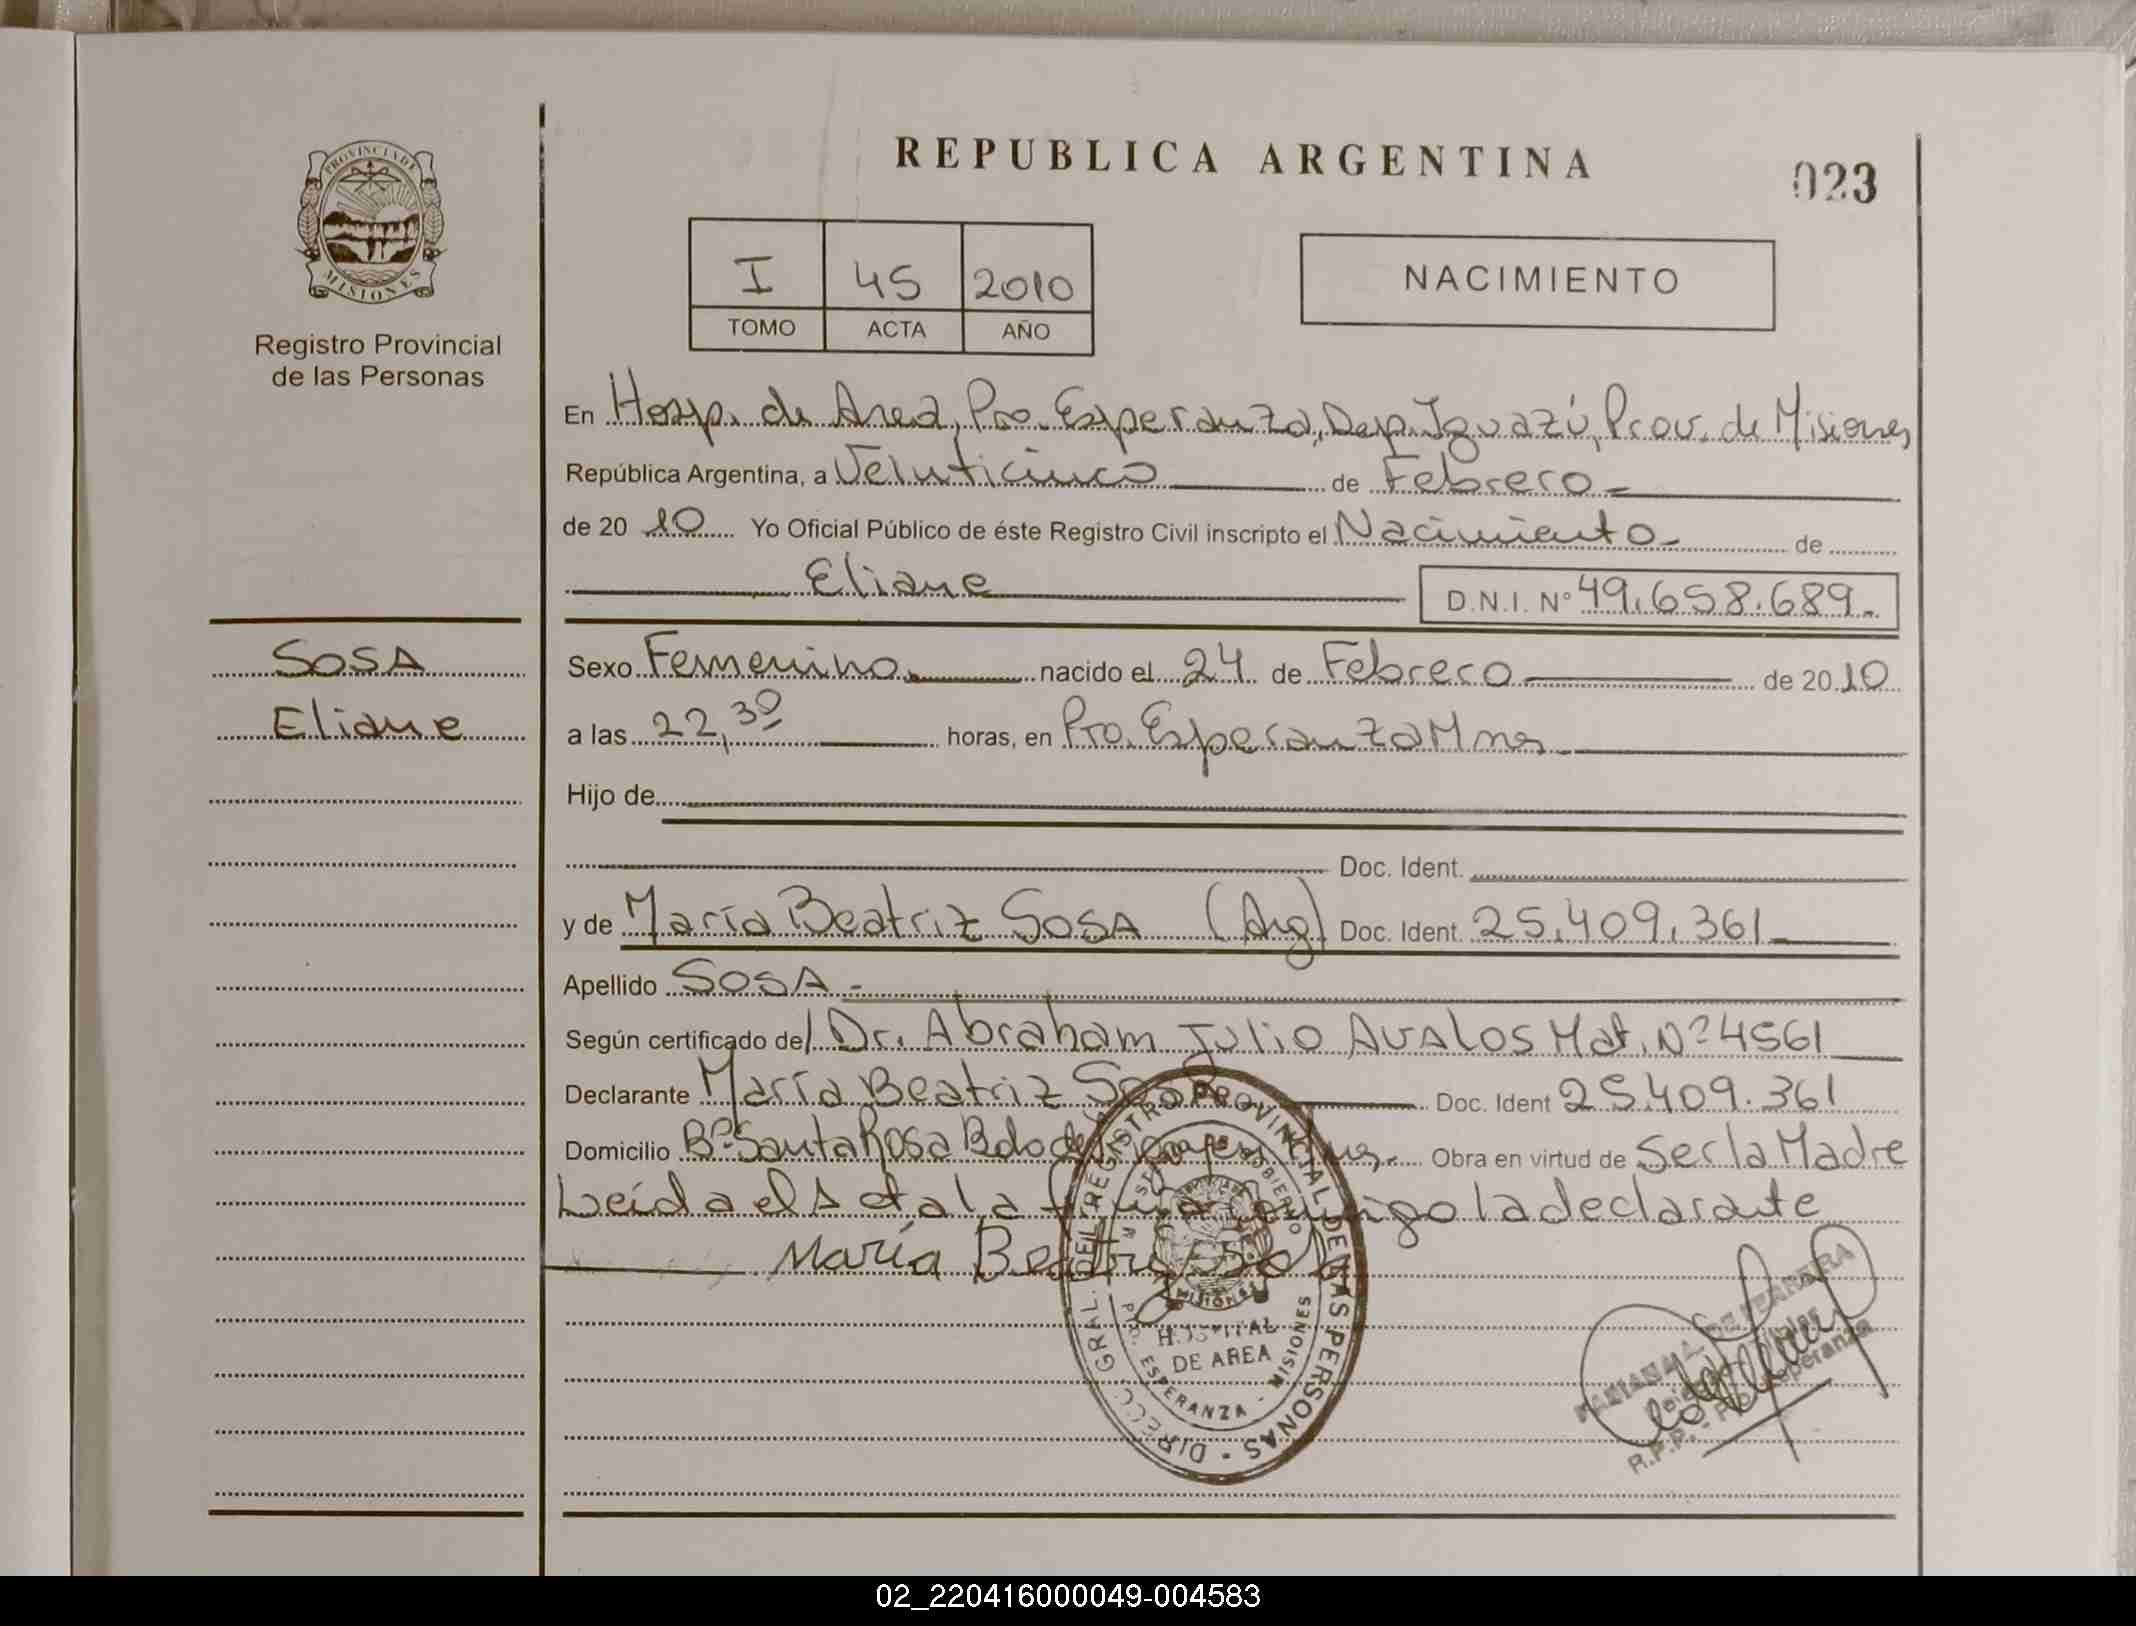 REPUBLICA ARGENTINA
023
PROVINCIA DE
MISIONES
Registro Provincial
de las Personas
I 45 2010
TOMO ACTA AÑO
NACIMIENTO
En Hosp. de Area, Pto. Esperanza, Dep. Iguazú, Prov. de Misiones
República Argentina, a Veinticinco de Febrero
de 20 10 Yo Oficial Público de éste Registro Civil inscripto el Nacimiento de
Eliane D.N.I. Nº 49.658.689.
SOSA
Eliane
Sexo Femenino nacido el 24 de Febrero de 20 10
a las 22,30 horas, en Pto. Esperanza Mnes
Hijo de
Doc. Ident.
y de María Beatriz SOSA (Arg) Doc. Ident. 25.409.361
Apellido SOSA -
Según certificado del Dr. Abraham Julio AVALOS Mat. Nº 4561
Declarante María Beatriz Sosa Doc. Ident 25.409.361
Domicilio Bº Santa Rosa Obra en virtud de Ser la Madre
Leída el Acta la firma conmigo la declarante
María Beatriz Sosa
DIRECC. GRAL. DEL REGISTRO PROVINCIAL DE LAS PERSONAS
MISIONES
HOSPITAL
DE AREA
PTO. ESPERANZA - MISIONES
R.P.P. - Pto. Esperanza
02_220416000049-004583